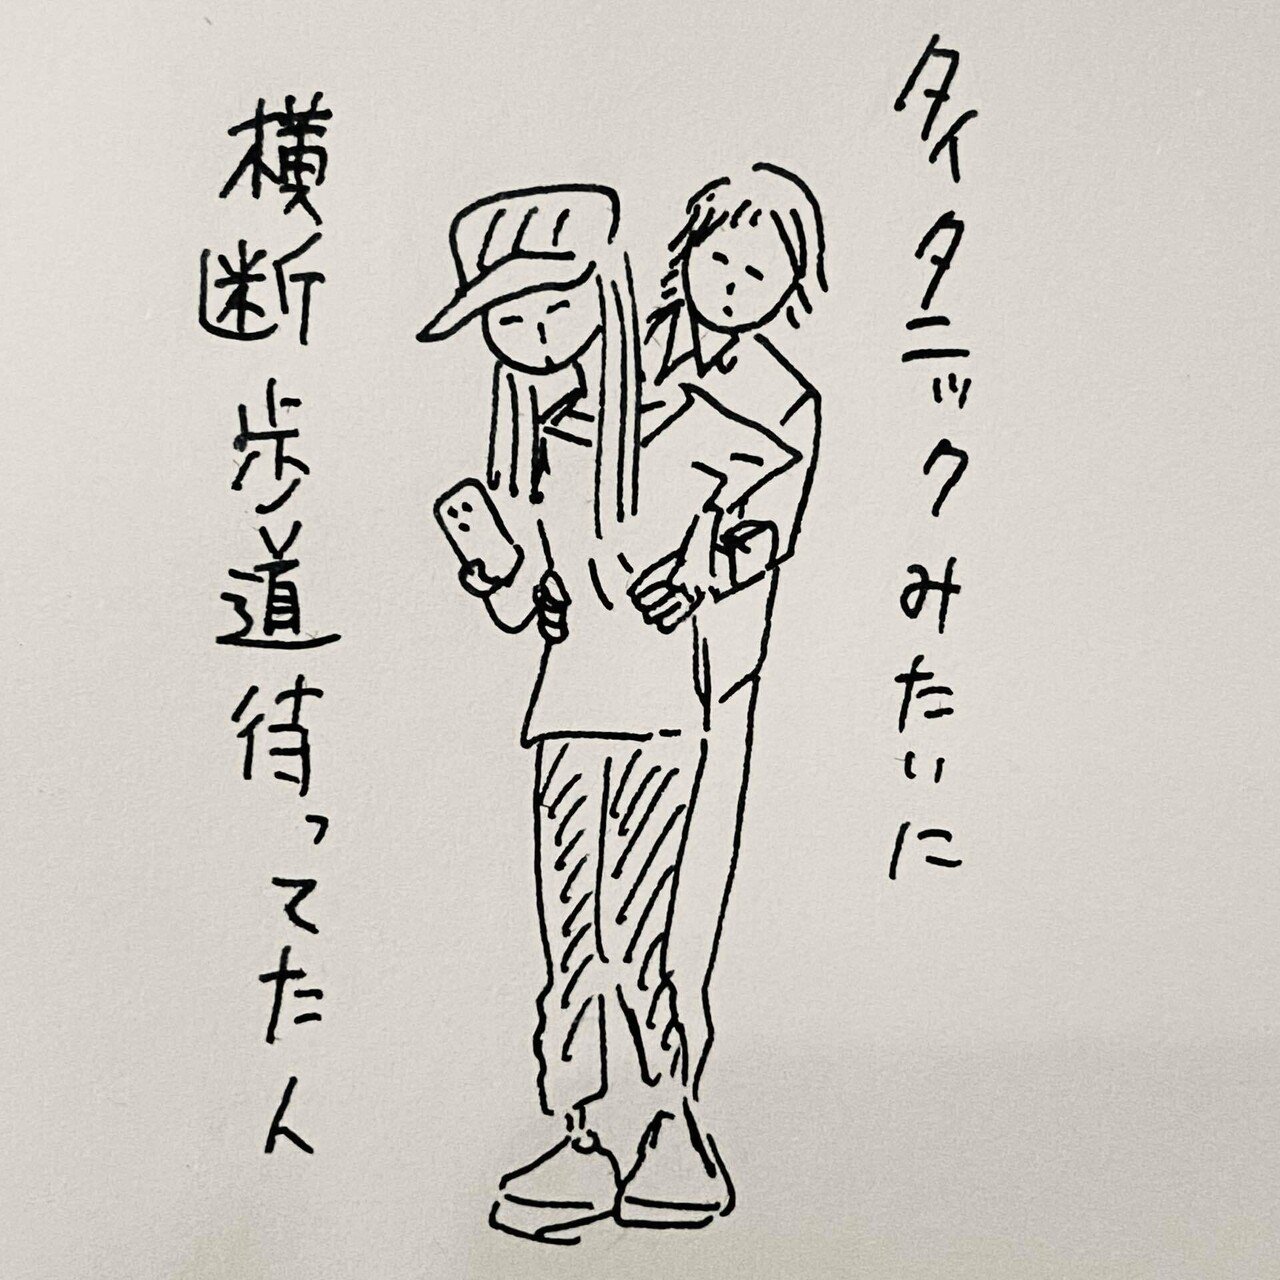 タイタニックみたいに
横断歩道待ってたん